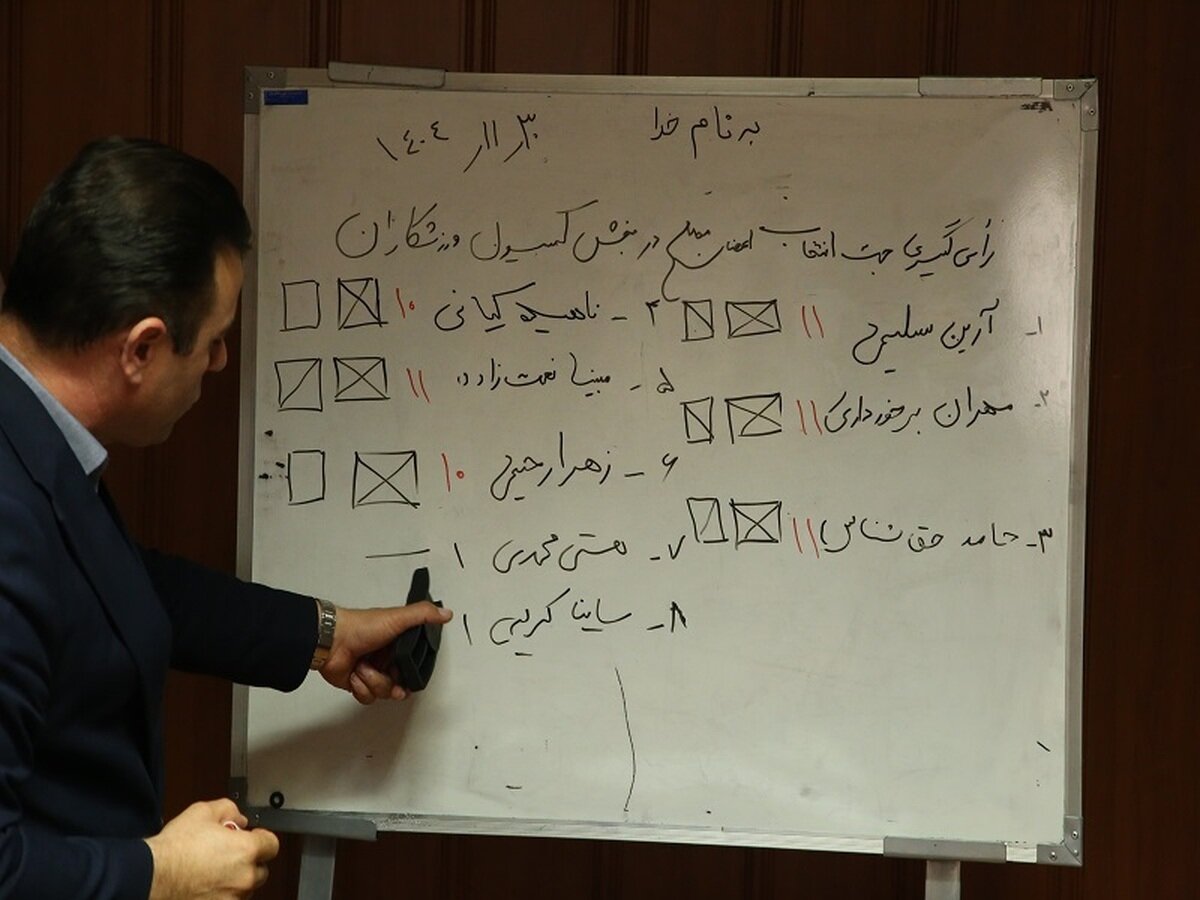 به نام خدا
۳۰ / ۱۱ / ۱۴۰۴
رأی گیری جهت انتخاب اعضای منتخب در بخش کمسیون ورزشکاران
۱- آرین سلیمی ۱۱
۲- مهران برخورداری ۱۱
۳- حامد حق شناس ۱۱
۴- ناهید کیانی ۱۰
۵- مبینا نعمت زاده ۱۱
۶- زهرا رحیمی ۱۰
۷- هستی محمدی ۱
۸- ساینا کریمی ۱